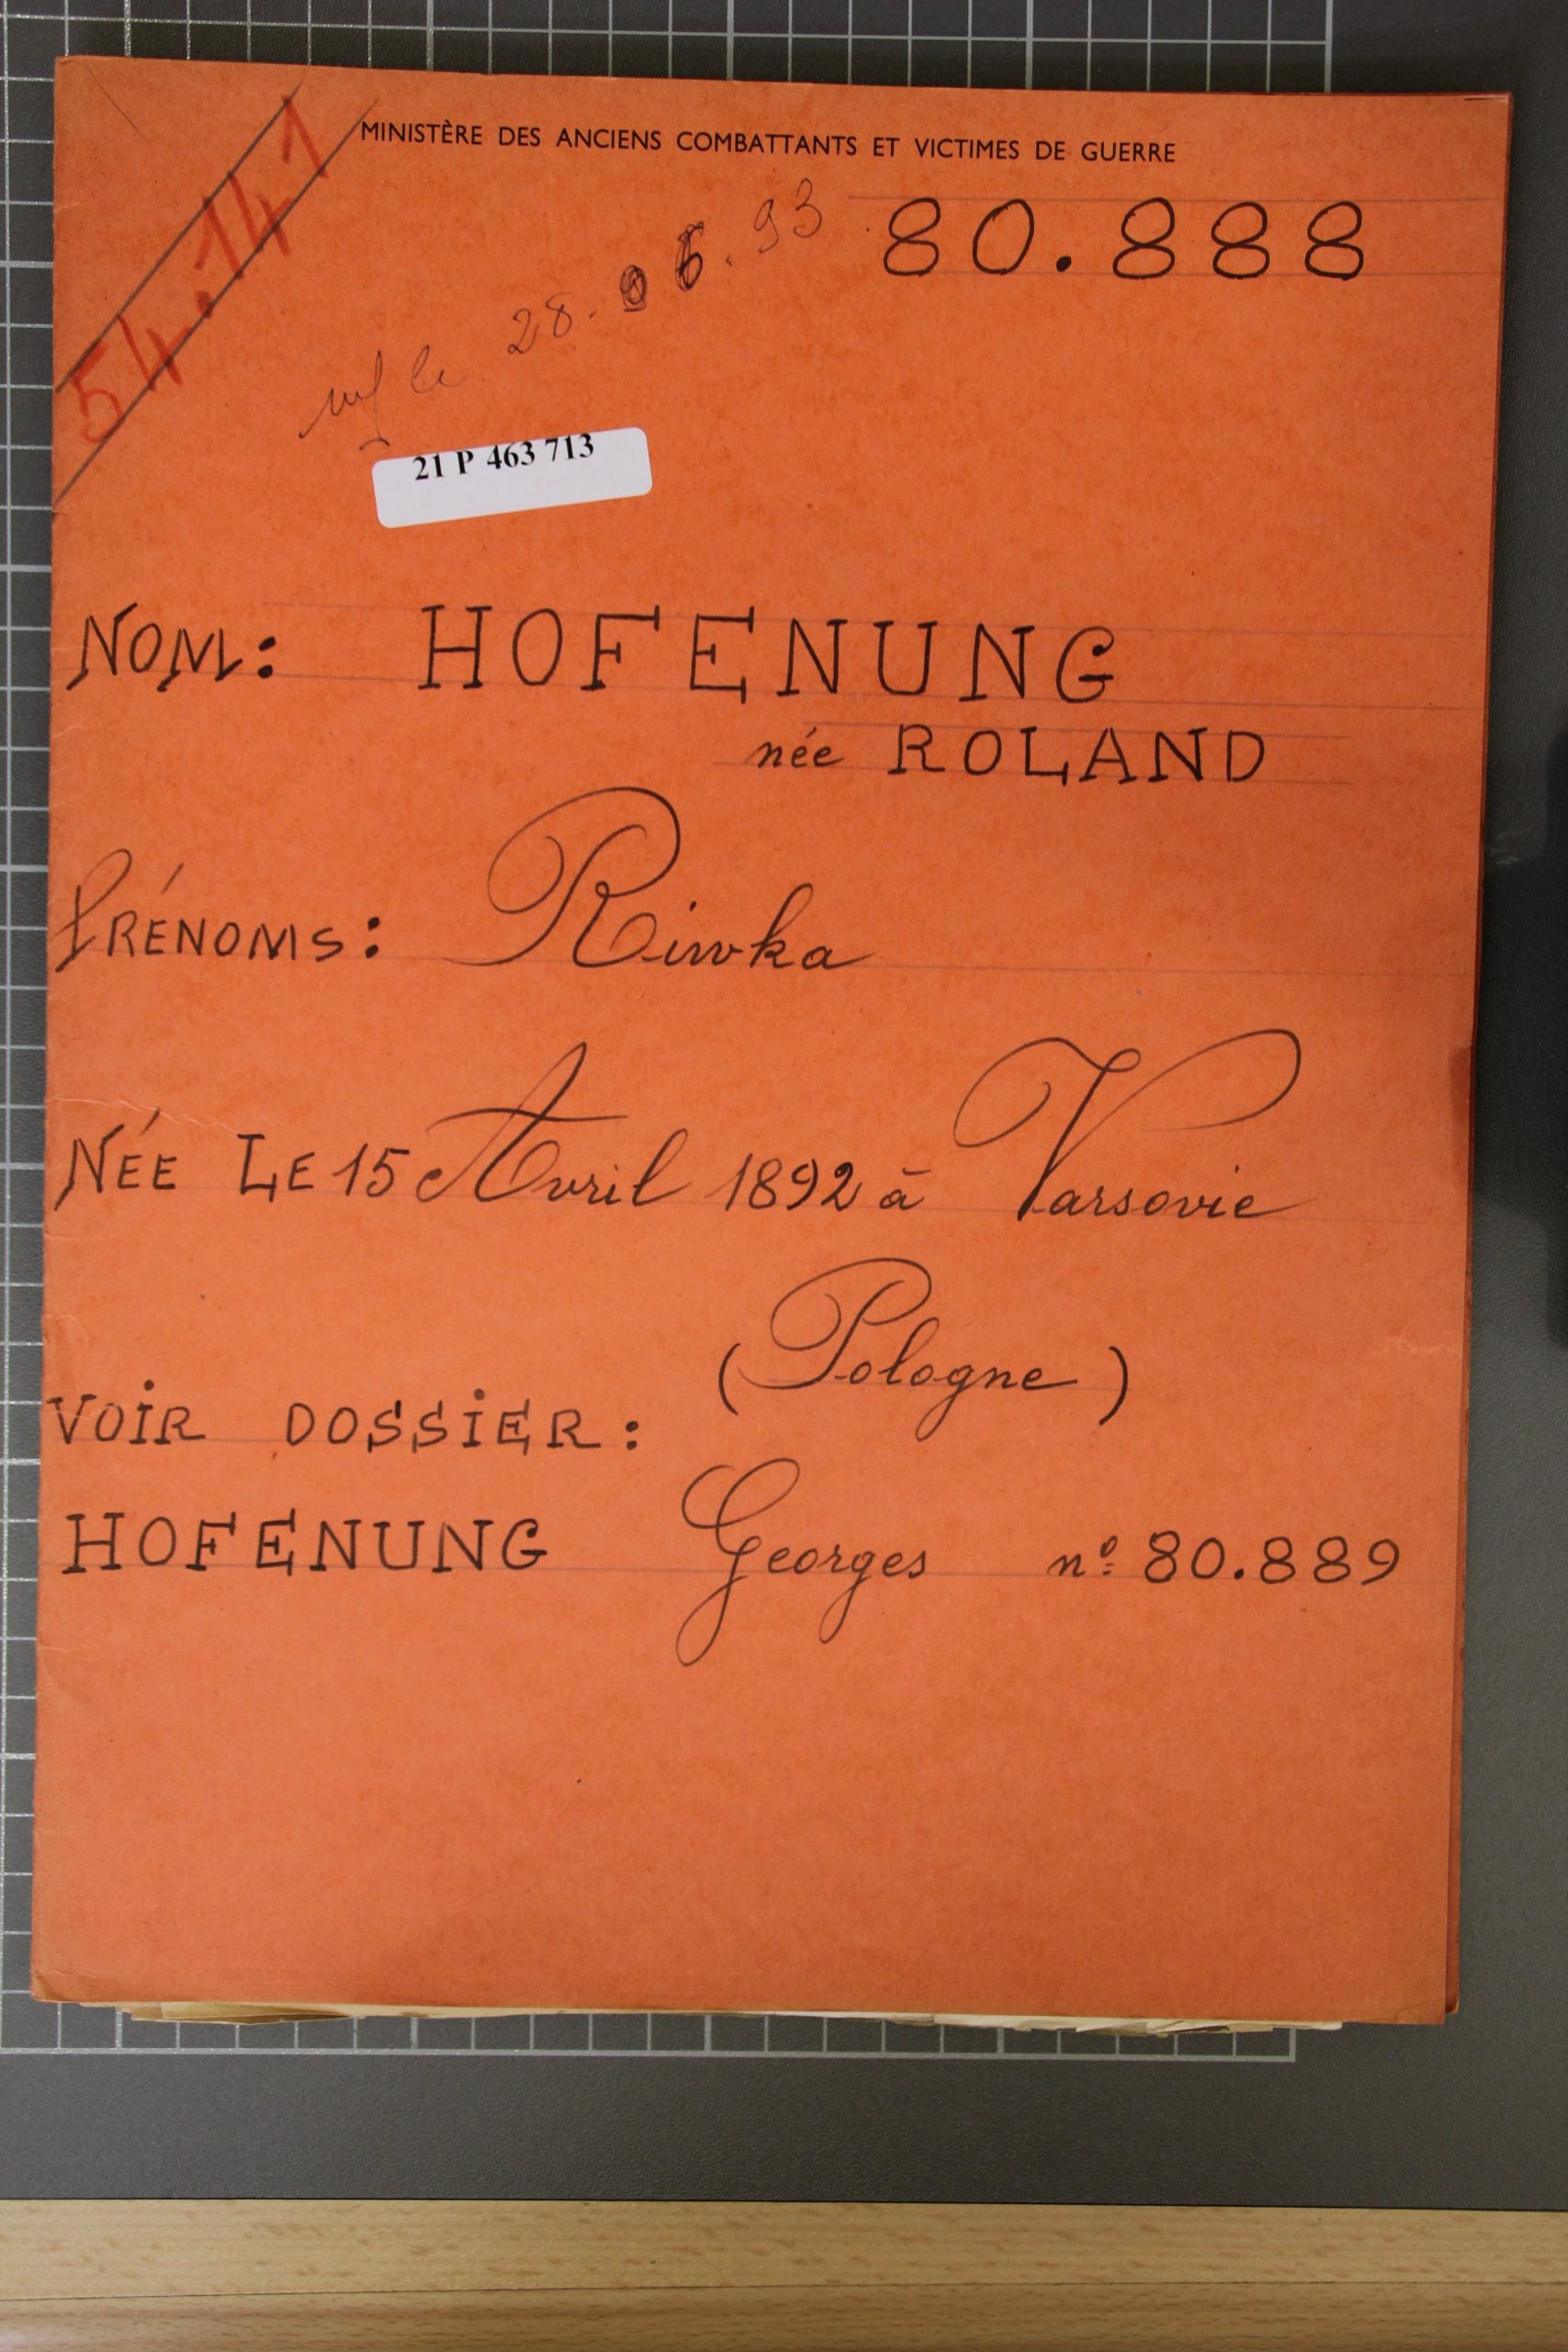 MINISTÈRE DES ANCIENS COMBATTANTS ET VICTIMES DE GUERRE
54.141
80.888
le 28.06.93
21 P 463 713
NOM: HOFENUNG
née ROLAND
PRÉNOMS: Riwka
NÉE LE 15 Avril 1892 à Varsovie
(Pologne)
VOIR DOSSIER:
HOFENUNG Georges nº 80.889